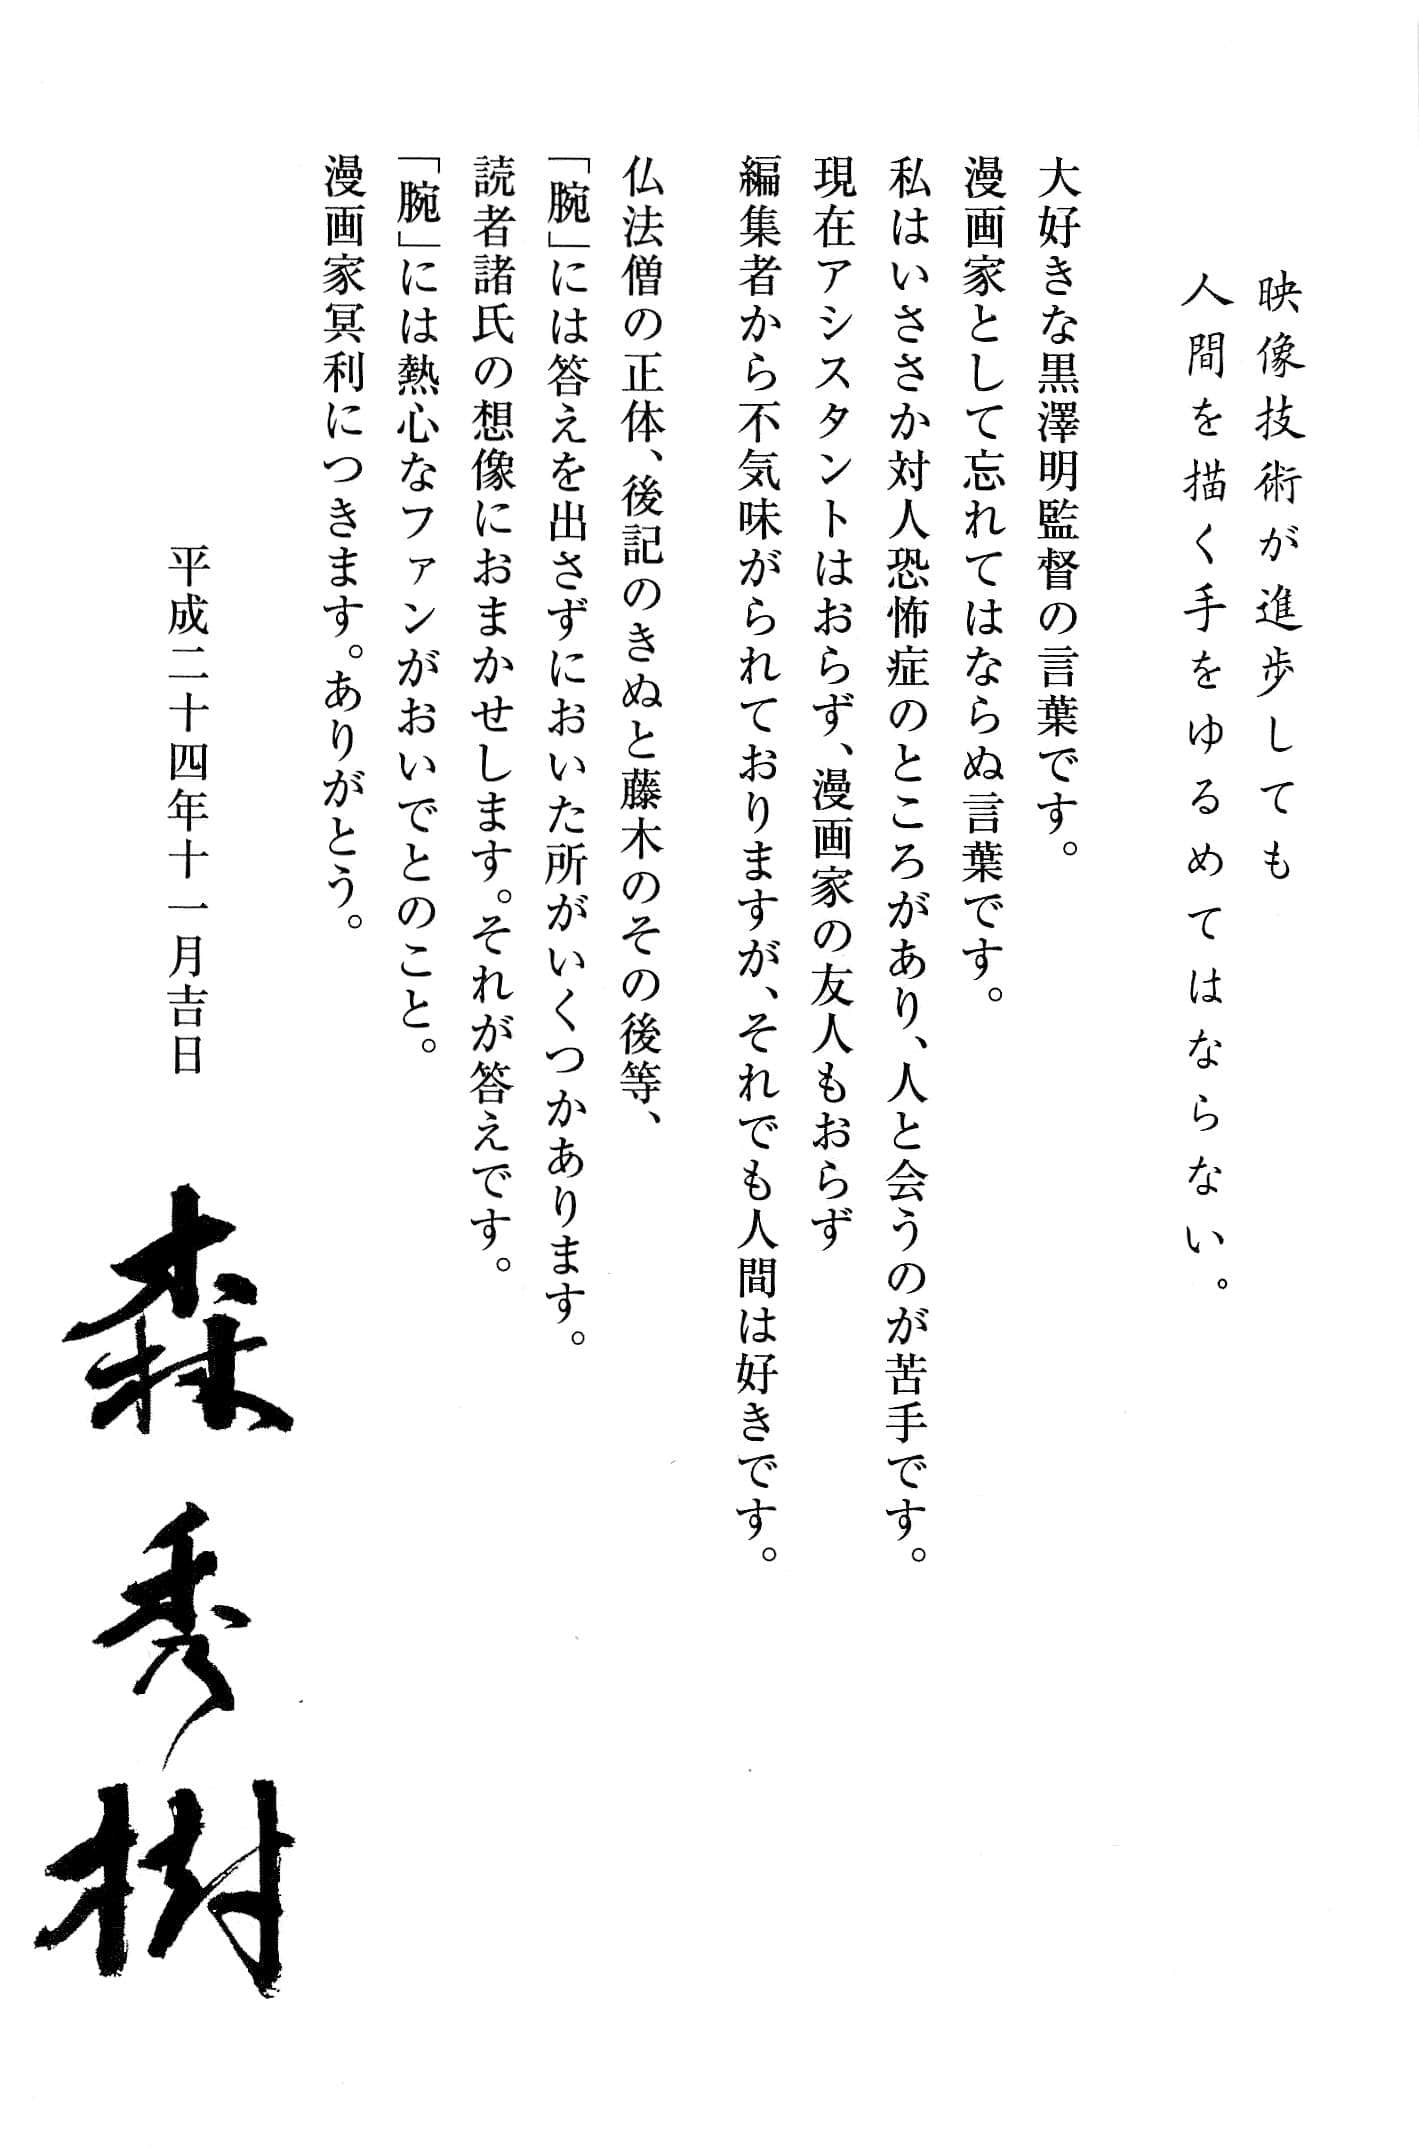 映像技術が進歩しても
人間を描く手をゆるめてはならない。
大好きな黒澤明監督の言葉です。
漫画家として忘れてはならぬ言葉です。
私はいささか対人恐怖症のところがあり、人と会うのが苦手です。
現在アシスタントはおらず、漫画家の友人もおらず
編集者から不気味がられておりますが、それでも人間は好きです。
仏法僧の正体、後記のきぬと藤木のその後等、
「腕」には答えを出さずにおいた所がいくつかあります。
読者諸氏の想像におまかせします。それが答えです。
「腕」には熱心なファンがおいでとのこと。
漫画家冥利につきます。ありがとう。
平成二十四年十一月吉日
森秀樹